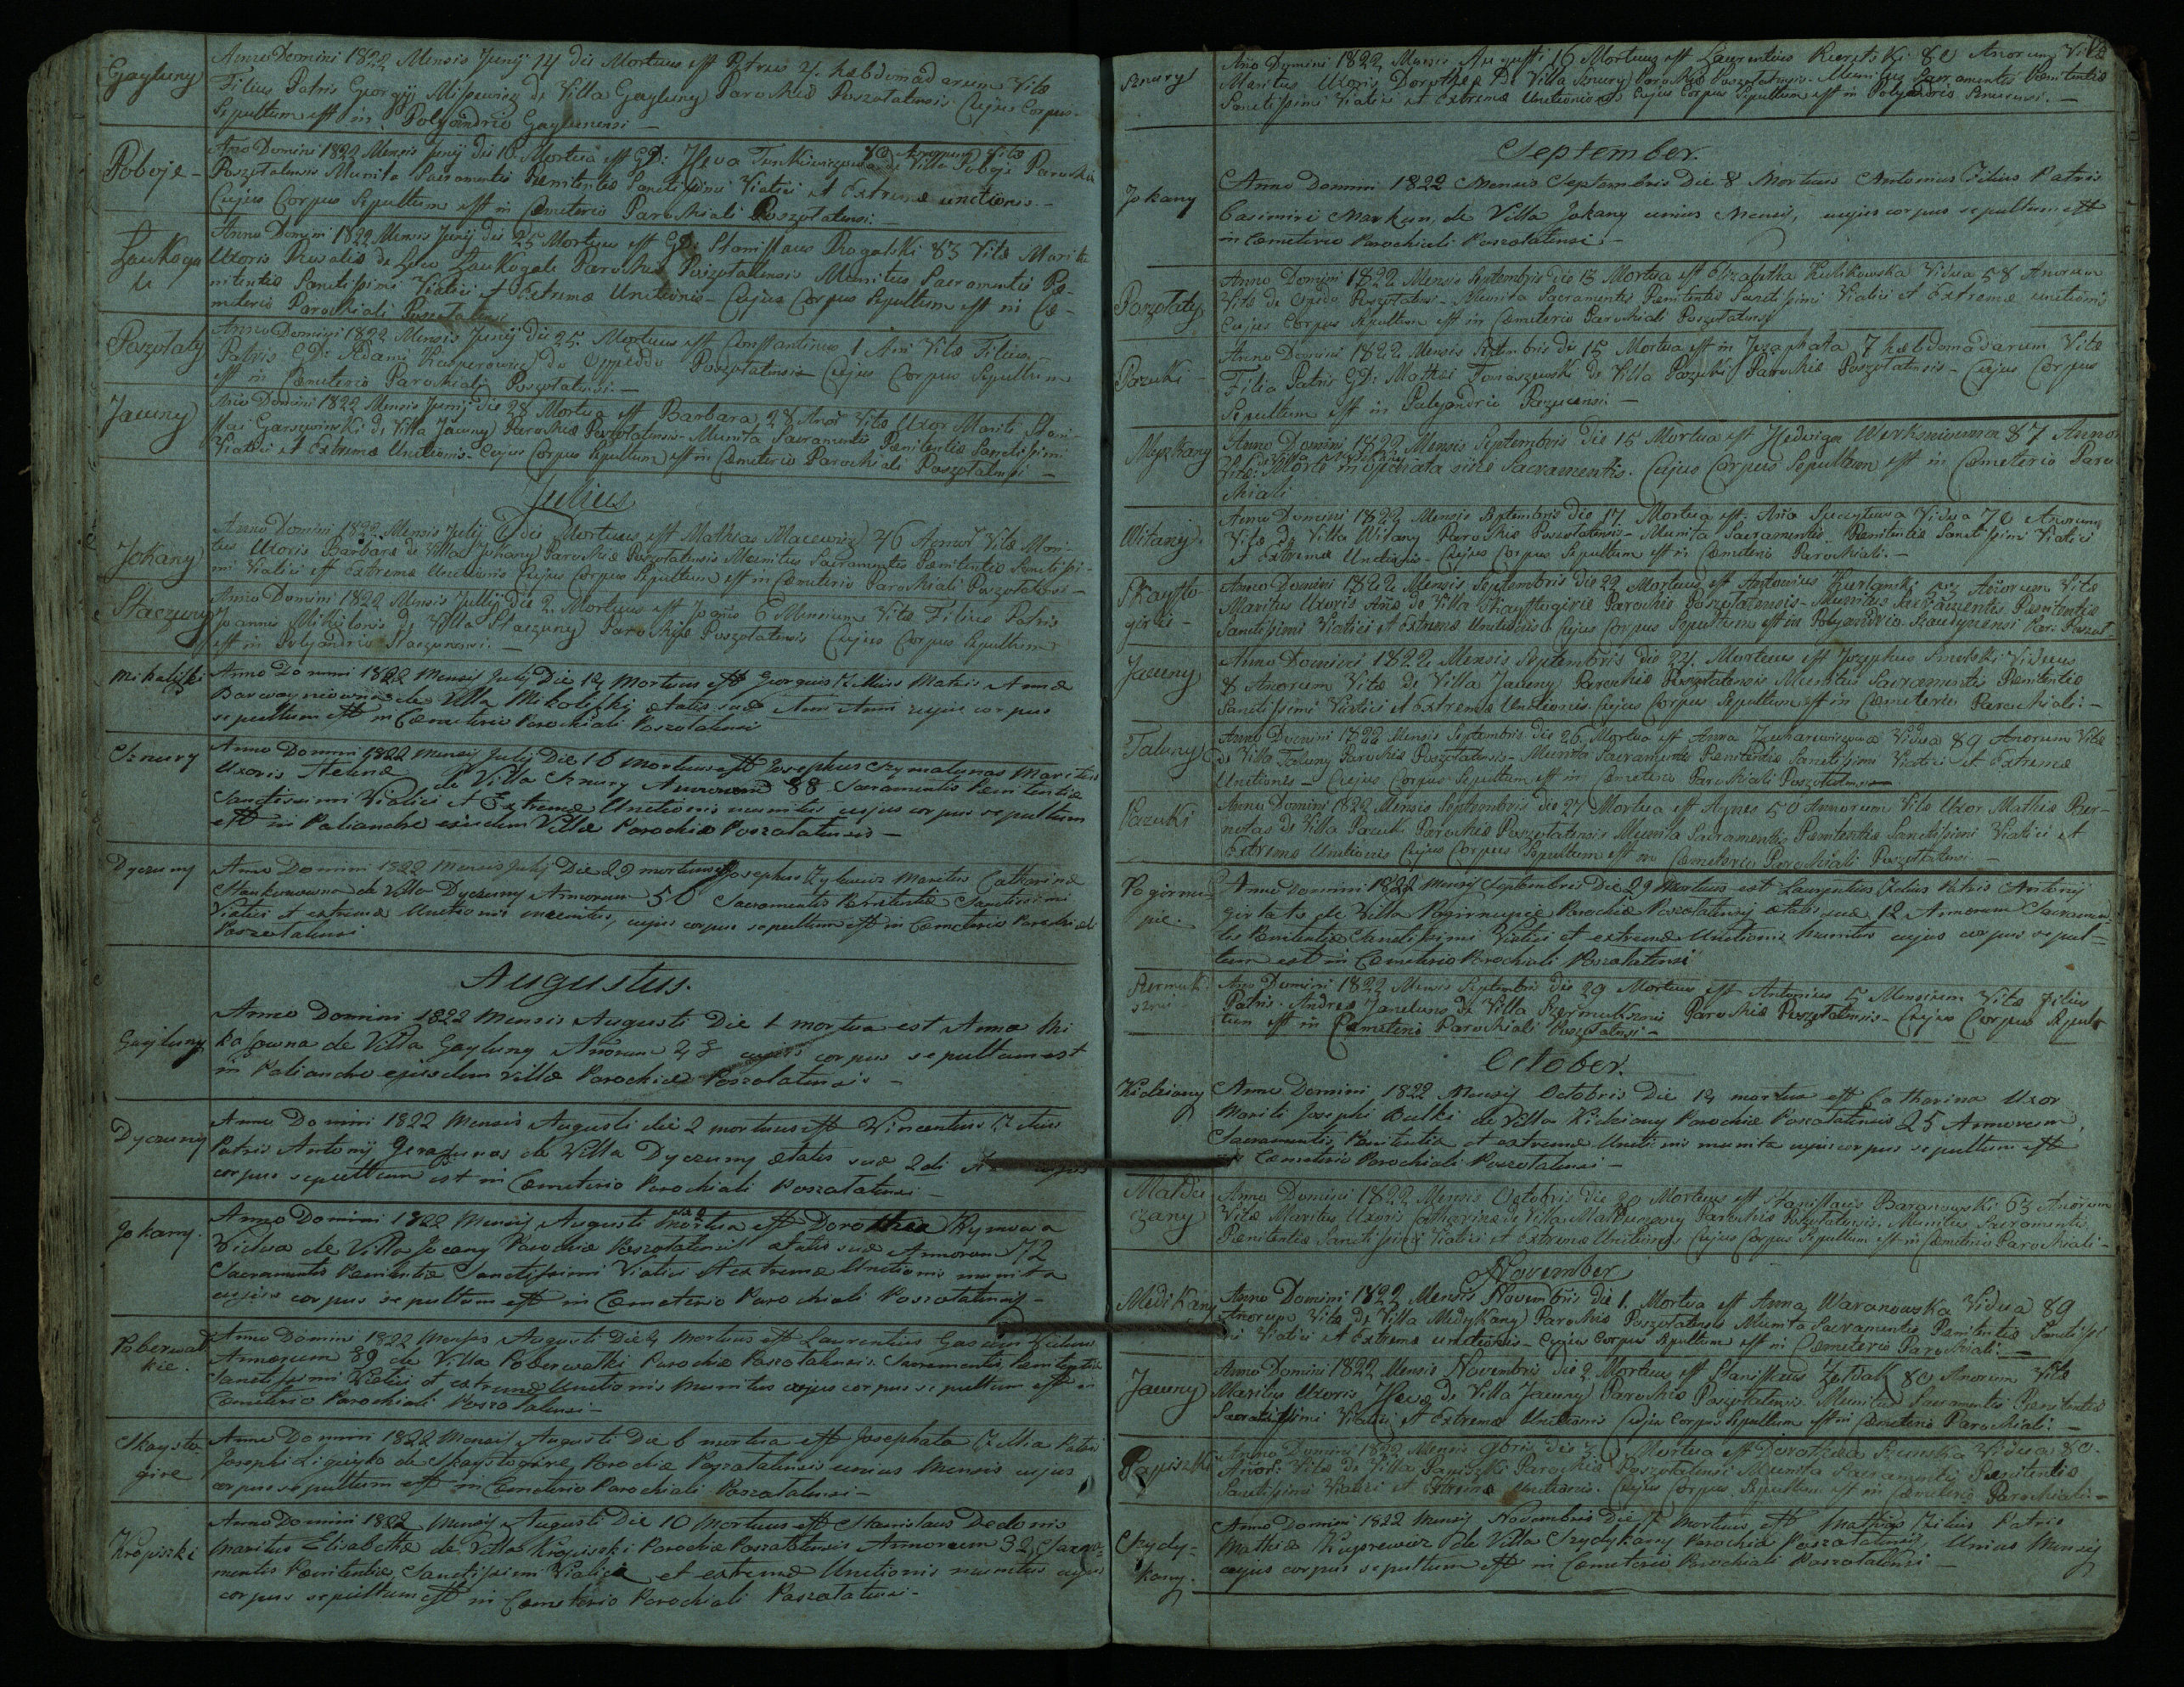 Gayluny
Anno Domini 1822 Mensis Junij 14 die Mortuus est Petrus 4. hebdomadarum Vitæ
Filius Patris Georgij de Villa Gayluny Parochiæ Poszołatensis Cujus Corpus
Sepultum est in Polyandrio Gaylunensi —
Poboje -
Anno Domini 1822 Mensis Junij die 16. Mortua est GD: Heva 80 Annorum Vitæ de Villa Poboje Parochiæ
Poszołatensis Munita Sacramentis Pænitentiæ Sanctissimi Viatici et Extremæ unctionis -
Cujus Corpus Sepultum est in Cæmeterio Parochiali Poszołatensi. —
Anno Domini 1822 Mensis Junij die 25 Mortuus est GD: Stanislaus Rogalski 83 Vitæ Maritus
Uxoris Rosaliæ de Parochiæ Poszołatensis Munitus Sacramentis Pæ-
nitentiæ Sanctissimi Viatici et Extremæ Unctionis - Cujus Corpus Sepultum est in Cæ-
meterio Parochiali Poszołatensi
Poszołaty
Anno Domini 1822 Mensis Junij die 25. Mortuus est Constantinus 1 Ani Vitæ Filius
Patris GD: Adami de Oppido Poszołatensi Cujus Corpus Sepultum
est in Cæmeterio Parochiali Poszołatensi. —
Jawny
Ano Domini 1822 Mensis Junij die 28 Mortua est Barbara 28 Anor Vitæ Uxor Mariti Stani-
slai de Villa Jawny Parochiæ Poszołatensis - Munita Sacramentis Pænitentiæ Sanctissimi
Viatici et Extremæ Unctionis. Cujus Corpus Sepultum est in Cæmeterio Parochiali Poszołatensi —
Julius
Jokany
Anno Domini 1822 Mensis Julij die Mortuus est Mathias Macewicz 46 Annor Vitæ Mari-
tus Uxoris Barbaræ de Villa Jokany Parochiæ Poszołatensis Munitus Sacramentis Pænitentiæ Sanctissi-
mi Viatici et Extremæ Unctionis Cujus Corpus Sepultum est in Cæmeterio Parochiali Poszołatensi —
Staczuny
Anno Domini 1822 Mensis Julij die 2. Mortuus est 6 Mensium Vitæ Filius Patris
Joannis de Villa Staczuny Parochiæ Poszołatensis Cujus Corpus Sepultum
est in Polyandrio. —
Anno Domini 1822 Mensis Julij Die 14 Mortuus est Georgius Filius Matris Annæ
de Villa ætatis suæ cujus corpus
sepultum est in Cæmeterio Parochiali Poszolatensi
Sznury
Anno Domini 1822 Mensis Julij Die 16 mortuus est Josephus Szymalunas Maritus
Uxoris de Villa Sznury Annorum 88 Sacramentis Pænitentiæ
Sanctissimi Viatici et Extremæ Unctionis munitus cujus corpus sepultum
est in Poliandro ejusdem Villæ Parochiæ Poszolatensis —
Dyczuny
Anno Domini 1822 Mensis Julij Die 22 mortuus est Josephus Maritus Catharinæ
de Villa Dyczuny Annorum 50 Sacramentis Pænitentiæ Sanctissimi
Viatici et extremæ Unctionis munitus, cujus corpus sepultum est in Cæmeterio Parochiali
Poszolatensi
Augustus.
Gayluny
Anno Domini 1822 Mensis Augusti Die 1 mortua est Anna
de Villa Gayluny Anorum 28 cujus corpus sepultum est
in Poliandro ejusdem villæ Parochiæ Poszolatensis —
Dyczuny
Anno Domini 1822 Mensis Augusti die 2 mortuus est Vincentius Filius
Patris Antonij Gerasunas de Villa Dyczuny ætatis suæ 2di
corpus sepultum est in Cæmeterio Parochiali Poszolatensi —
Jokany.
Anno Domini 1822 Mensis Augusti mortua est Dorothea
Vidua de Villa Jocany Parochiæ Poszolatensis ætatis suæ Annorum 72
Sacramentis Pænitentiæ Sanctissimi Viatici et extremæ Unctionis munita
cujus corpus sepultum est in Cæmeterio Parochiali Poszolatensi —
Poberwal
kie.
Anno Domini 1822 Mensis Augusti Die 4 Mortuus est Laurentius Viduus
Annorum 89 de Villa Poberwalki Parochiæ Poszolatensis. Sacramentis Pænitentiæ
Sanctissimi Viatici et extremæ Unctionis Munitus cujus corpus sepultum est in
Cæmeterio Parochiali Poszolatensi —
Skaysto
gire
Anno Domini 1822 Mensis Augusti Die 6 mortua est Josephata Filia Patris
Josephi de Skaystogire Parochiæ Poszolatensis unius Mensis cujus
corpus sepultum est in Cæmeterio Parochiali Poszolatensi —
Kropiszki
Anno Domini 1822 Mensis Augusti Die 10 Mortuus est Stanislaus Dedonis
Maritus Elisabethæ de Villa Kropiszki Parochiæ Poszolatensis Annorum 32, Sacra-
mentis Pænitentiæ Sanctissimi Viatici et extremæ Unctionis munitus cujus
corpus sepultum est in Cæmeterio Parochiali Poszolatensi —
Sznury
Ano Domini 1822 Mensis Augusti 16 Mortuus est Laurentius 80 Anorum Vitæ
Maritus Uxoris Dorotheæ De Villa Sznury Parochiæ Poszołatensis - Munitus Sacramentis Pænitentiæ
Sanctissimi Viatici et Extremæ Unctionis Cujus Corpus Sepultum est in Polyandrio Sznurensi. —
September.
Jokany
Anno Domini 1822 Mensis Septembris Die 8 Mortuus Antonius Filius Patris
Casimiri Markun de Villa Jokany unius Mensis, cujus corpus sepultum est
in Cæmeterio Parochiali Poszolatensi —
Poszołaty
Anno Domini 1822 Mensis Septembris die 13 Mortua est Elizabetha Kulikowska Vidua 58 Anorum
Vitæ de Opido Poszołatensi - Munita Sacramentis Pænitentiæ Sanctissimi Viatici et Extremæ unctionis
Cujus Corpus Sepultum est in Cæmeterio Parochiali Poszołatensi
Pazuki
Anno Domini 1822 Mensis Septembris die 15 Mortua est Jozaphata 7 hebdomadarum Vitæ
Filia Patris GD: Mathei Tomaszewski de Villa Pazuki Parochiæ Poszołatensis - Cujus Corpus
Sepultum est in Polyandrio —
Anno Domini 1822 Mensis Septembris die 15 Mortua est Hedwiga 87 Annor
Vitæ Morte inopinata sine Sacramentis. Cujus Corpus Sepultum est in Cæmeterio Paro
chiali
Witany
Anno Domini 1822 Mensis Septembris die 17 Mortua est Aña Vidua 70 Anorum
Vitæ de Villa Witany Parochiæ Poszołatensis - Munita Sacramentis Pænitentiæ Sanctissimi Viatici
et Extremæ Unctionis - Cujus Corpus Sepultum est in Cæmeterio Parochiali. —
Skaysto-
girie -
Anno Domini 1822 Mensis Septembris die 22 Mortuus est Antonius 53 Añorum Vitæ
Maritus Uxoris Añæ de Villa Skaystogirie Parochiæ Poszołatensis - Munitus Sacramentis Pænitentiæ
Sanctissimi Viatici et Extremæ Unctionis Cujus Corpus Sepultum est in Polyandrio Par. Poszoł
Jawny
Anno Domini 1822 Mensis Septembris die 24. Mortuus est Jozephus Viduus
8 Anorum Vitæ de Villa Jawny Parochiæ Poszołatensis Munitus Sacramentis Pænitentiæ
Sanctissimi Viatici et Extremæ Unctionis Cujus Corpus Sepultum est in Cæmeterio Parochiali. —
Taluny
Anno Domini 1822 Mensis Septembris die 26 Mortua est Anna Vidua 89 Anorum Vitæ
de Villa Taluny Parochiæ Poszołatensis - Munita Sacramentis Pænitentiæ Sanctissimi Viatici et Extremæ
Unctionis - Cujus Corpus Sepultum est in Cæmeterio Parochiali Poszołatensi
Pazuki
Anno Domini 1822 Mensis Septembris die 27 Mortua est Agnes 50 Annorum Vitæ Uxor Mathiæ
de Villa Pazuki Parochiæ Poszołatensis Munita Sacramentis Pænitentiæ Sanctissimi Viatici et
Extremæ Unctionis Cujus Corpus Sepultum est in Cæmeterio Parochiali Poszołatensi —
Pogirnu-
pie.
Anno Domini 1822 Mensis Septembris Die 29 Mortuus est Laurentius Filius Patris Antonij
de Villa Pogirnupie Parochiæ Poszolatensis ætatis suæ 12 Annorum Sacramen-
tis Pænitentiæ Sanctissimi Viatici et extremæ Unctionis munitus cujus corpus sepul-
tum est in Cæmeterio Parochiali Poszolatensi
Anno Domini 1822 Mensis Septembris die 29 Mortuus est Antonius 5 Mensium Vitæ Filius
Patris Andreæ Janeluno de Villa Parochiæ Poszołatensis - Cujus Corpus Sepul-
tum est in Cæmeterio Parochiali Poszołatensi —
October.
Kidziany
Anno Domini 1822 Mensis Octobris Die 14 mortua est Catharina Uxor
Mariti Josephi Butki de Villa Kidziany Parochiæ Poszolatensis 25 Annorum,
Sacramentis Pænitentiæ et extremæ Unctionis munita cujus corpus sepultum est
in Cæmeterio Parochiali Poszolatensi —
Maldu
czany
Anno Domini 1822 Mensis Octobris die 20 Mortuus est Stanislaus Baranowski 63 Anorum
Vitæ Maritus Uxoris Catharinæ de Villa Malduczany Parochiæ Poszołatensis. Munitus Sacramentis
Pænitentiæ Sanctissimi Viatici et Extremæ Unctionis Cujus Corpus Sepultum est in Cæmeterio Parochiali -
November
Medikany
Anno Domini 1822 Mensis Novembris die 1. Mortua est Anna Waranowska Vidua 89
Anorum Vitæ de Villa Medykany Parochiæ Poszołatensis Munita Sacramentis Pænitentiæ Sanctissi
mi Viatici et Extremæ unctionis - Cujus Corpus Sepultum est in Cæmeterio Parochiali. —
Jawny
Anno Domini 1822 Mensis Novembris die 2. Mortuus est Stanislaus 80 Anorum Vitæ
Maritus Uxoris Hevæ de Villa Jawny Parochiæ Poszołatensis Munitus Sacramentis Pænitentiæ
Sacratissimi Viatici et Extremæ Unctionis Cujus Corpus Sepultum est in Cæmeterio Parochiali. —
Papiszki
Anno Domini 1822 Mensis 9bris die Mortua est Dorothea Vidua 80-
Añor: Vitæ de Villa Papiszki Parochiæ Poszołatensi Munita Sacramentis Pænitentiæ
Sanctissimi Viatici et Extremæ Unctionis. Cujus Corpus Sepultum est in Cæmeterio Parochiali —
Szydy-
kany.
Anno Domini 1822 Mensis Novembris Die 7 Mortuus est Mathias Filius Patris
Mathiæ de Villa Szydykany Parochiæ Poszolatensis Unius Mensis
cujus corpus sepultum est in Cæmeterio Parochiali Poszolatensi —